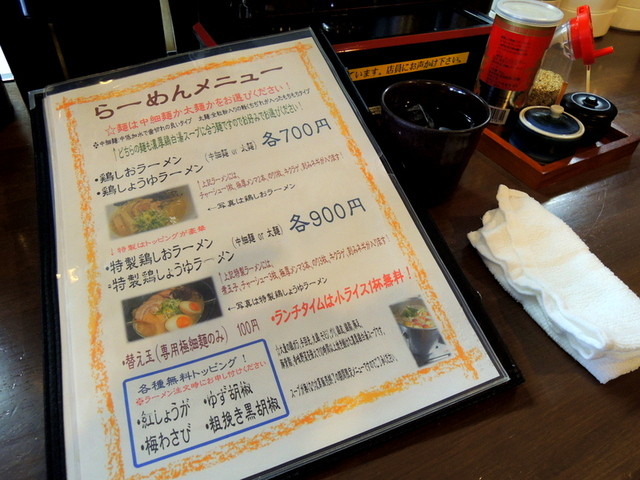 らーめんメニュー
☆麺は中細麺か太麺かをお選びください!
どちらの麺も濃厚鶏白湯スープに合う麺ですのでお好みでお選びください!
・鶏しおラーメン
・鶏しょうゆラーメン
(中細麺 or 太麺)
各700円
←写真は鶏しおラーメン
↓特製はトッピングが豪華
・特製鶏しおラーメン
・特製鶏しょうゆラーメン
(中細麺 or 太麺)
各900円
←写真は特製鶏しょうゆラーメン
・替え玉(専用極細麺のみ) 100円
・ランチタイムは小ライス1杯無料!
各種無料トッピング!
※ラーメン注文時にお申し付けください
・紅しょうが
・ゆず胡椒
・梅わさび
・粗挽き黒胡椒
います。店員にお声かけ下さい。